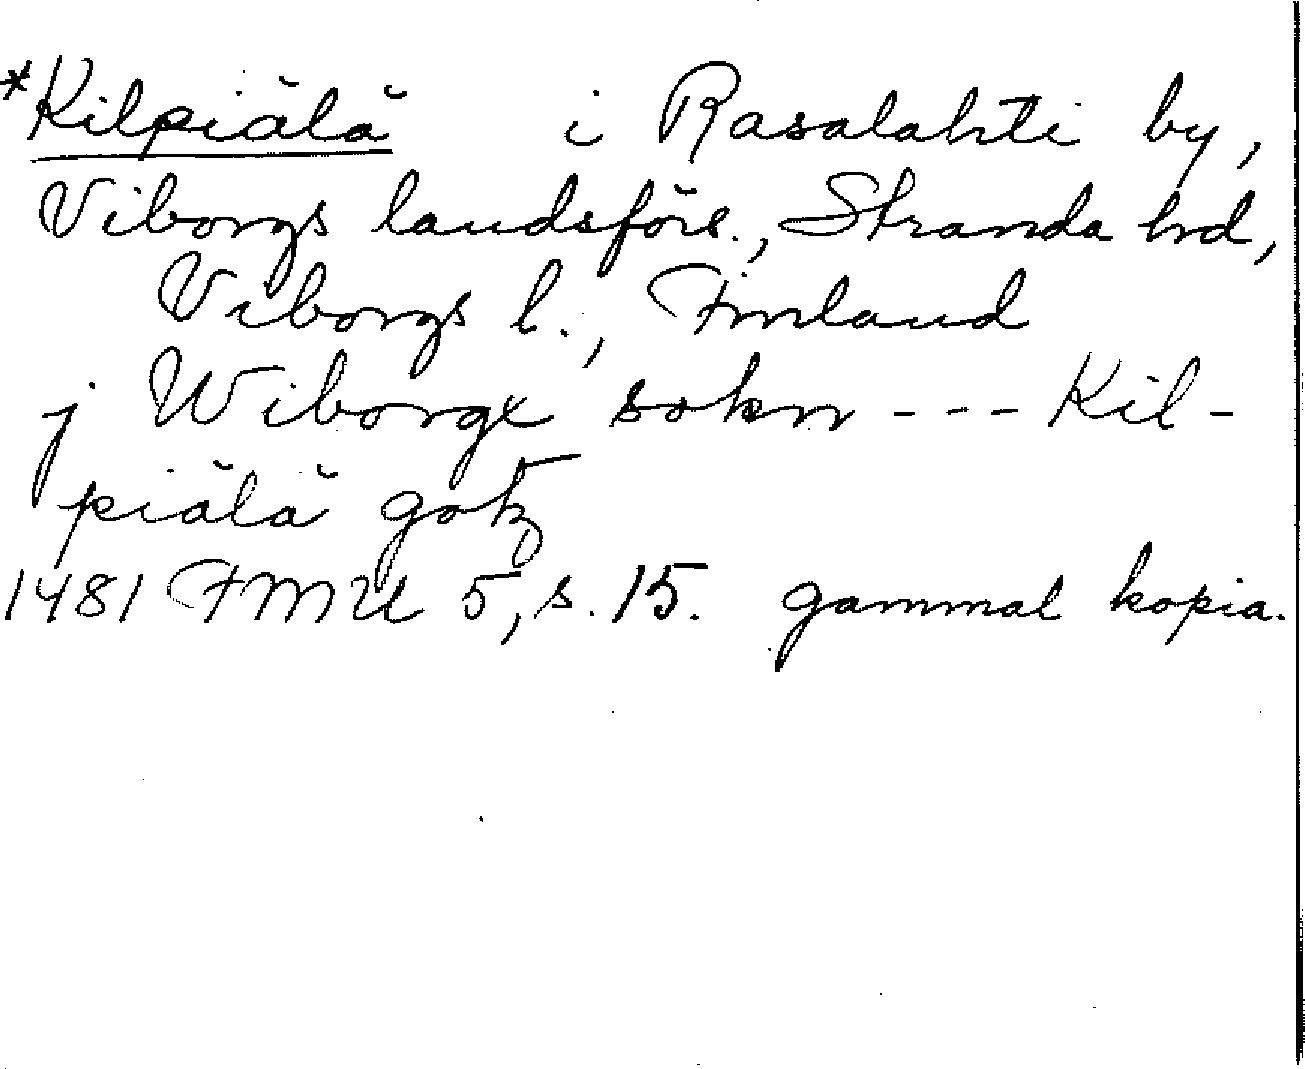 *Kilpiälä i Rasalahti by,
Viborgs landsförs., Stranda hrd,
Viborgs l., Finland
j Wiborgx sokn --- Kil-
piälä gotz
1481 FMU 5, s. 15. gammal kopia.